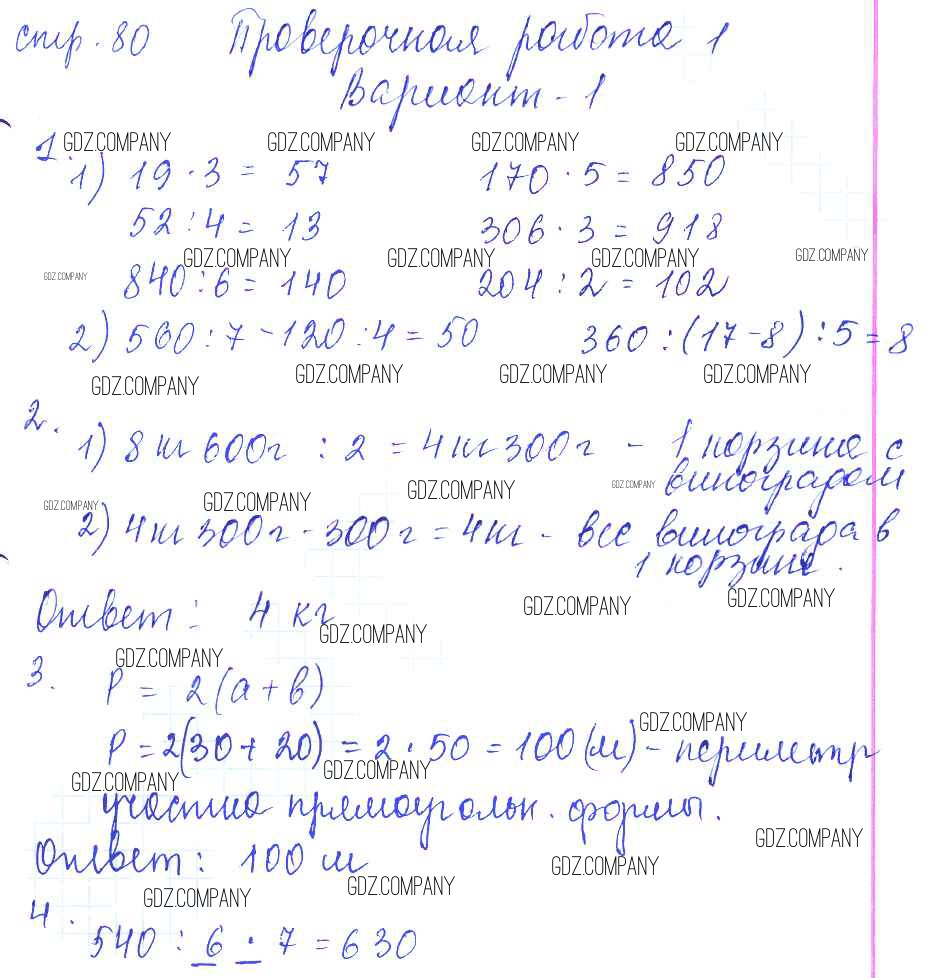 стр. 80 Проверочная работа 1
Вариант - 1
GDZ.COMPANY GDZ.COMPANY GDZ.COMPANY GDZ.COMPANY
1. 1) 19 · 3 = 57 170 · 5 = 850
52 : 4 = 13 306 · 3 = 918
GDZ.COMPANY GDZ.COMPANY GDZ.COMPANY GDZ.COMPANY GDZ.COMPANY
840 : 6 = 140 204 : 2 = 102
2) 560 : 7 - 120 : 4 = 50 360 : (17 - 8) : 5 = 8
GDZ.COMPANY GDZ.COMPANY GDZ.COMPANY GDZ.COMPANY
2.
1) 8 кг 600 г : 2 = 4 кг 300 г - 1 корзина с
виноградом
GDZ.COMPANY GDZ.COMPANY GDZ.COMPANY GDZ.COMPANY
2) 4 кг 300 г - 300 г = 4 кг - вес винограда в
1 корзине.
GDZ.COMPANY GDZ.COMPANY
Ответ: 4 кг
GDZ.COMPANY
GDZ.COMPANY
3. P = 2 (a + b)
GDZ.COMPANY
P = 2(30 + 20) = 2 · 50 = 100 (м) - периметр
GDZ.COMPANY GDZ.COMPANY
участка прямоугольн. формы.
GDZ.COMPANY
Ответ: 100 м
GDZ.COMPANY GDZ.COMPANY GDZ.COMPANY
4.
540 : 6 · 7 = 630